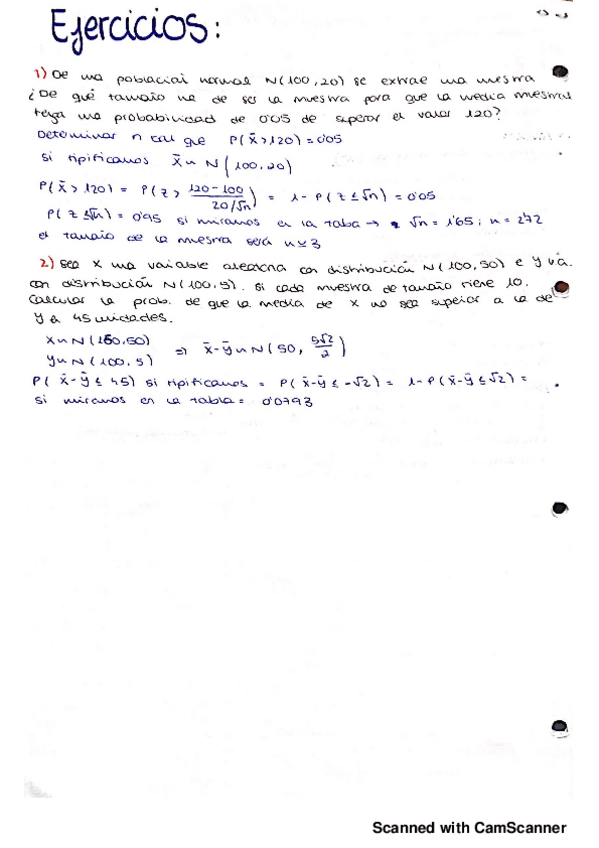 Ejercicios:
1) De una población normal N(100,20) se extrae una muestra
¿De qué tamaño ha de ser la muestra para que la media muestral
tenga una probabilidad de 0'05 de superar el valor 120?
Determinar n tal que P(x̄>120)=0'05
si tipificamos x̄ ~ N(100,20)
P(x̄>120) = P(z> 120-100 / 20/√n) = 1-P(z≤√n)=0'05
P(z≤√n)=0'95 si miramos en la tabla → √n = 1'65; n = 2'72
el tamaño de la muestra será n≃3
2) Sea X una variable aleatoria con distribución N(100,50) e Y v.a.
con distribución N(100,5). si cada muestra de tamaño tiene 10.
Calcular la prob. de que la media de X no sea superior a la de
Y a 45 unidades.
X~N(150,50)
Y~N(100,5) ⇒ x̄-ȳ~N(50, 5√2/2)
P(x̄-ȳ≤45) si tipificamos = P(x̄-ȳ≤-√2) = 1-P(x̄-ȳ≤√2) =
si miramos en la tabla = 0'0793
Scanned with CamScanner